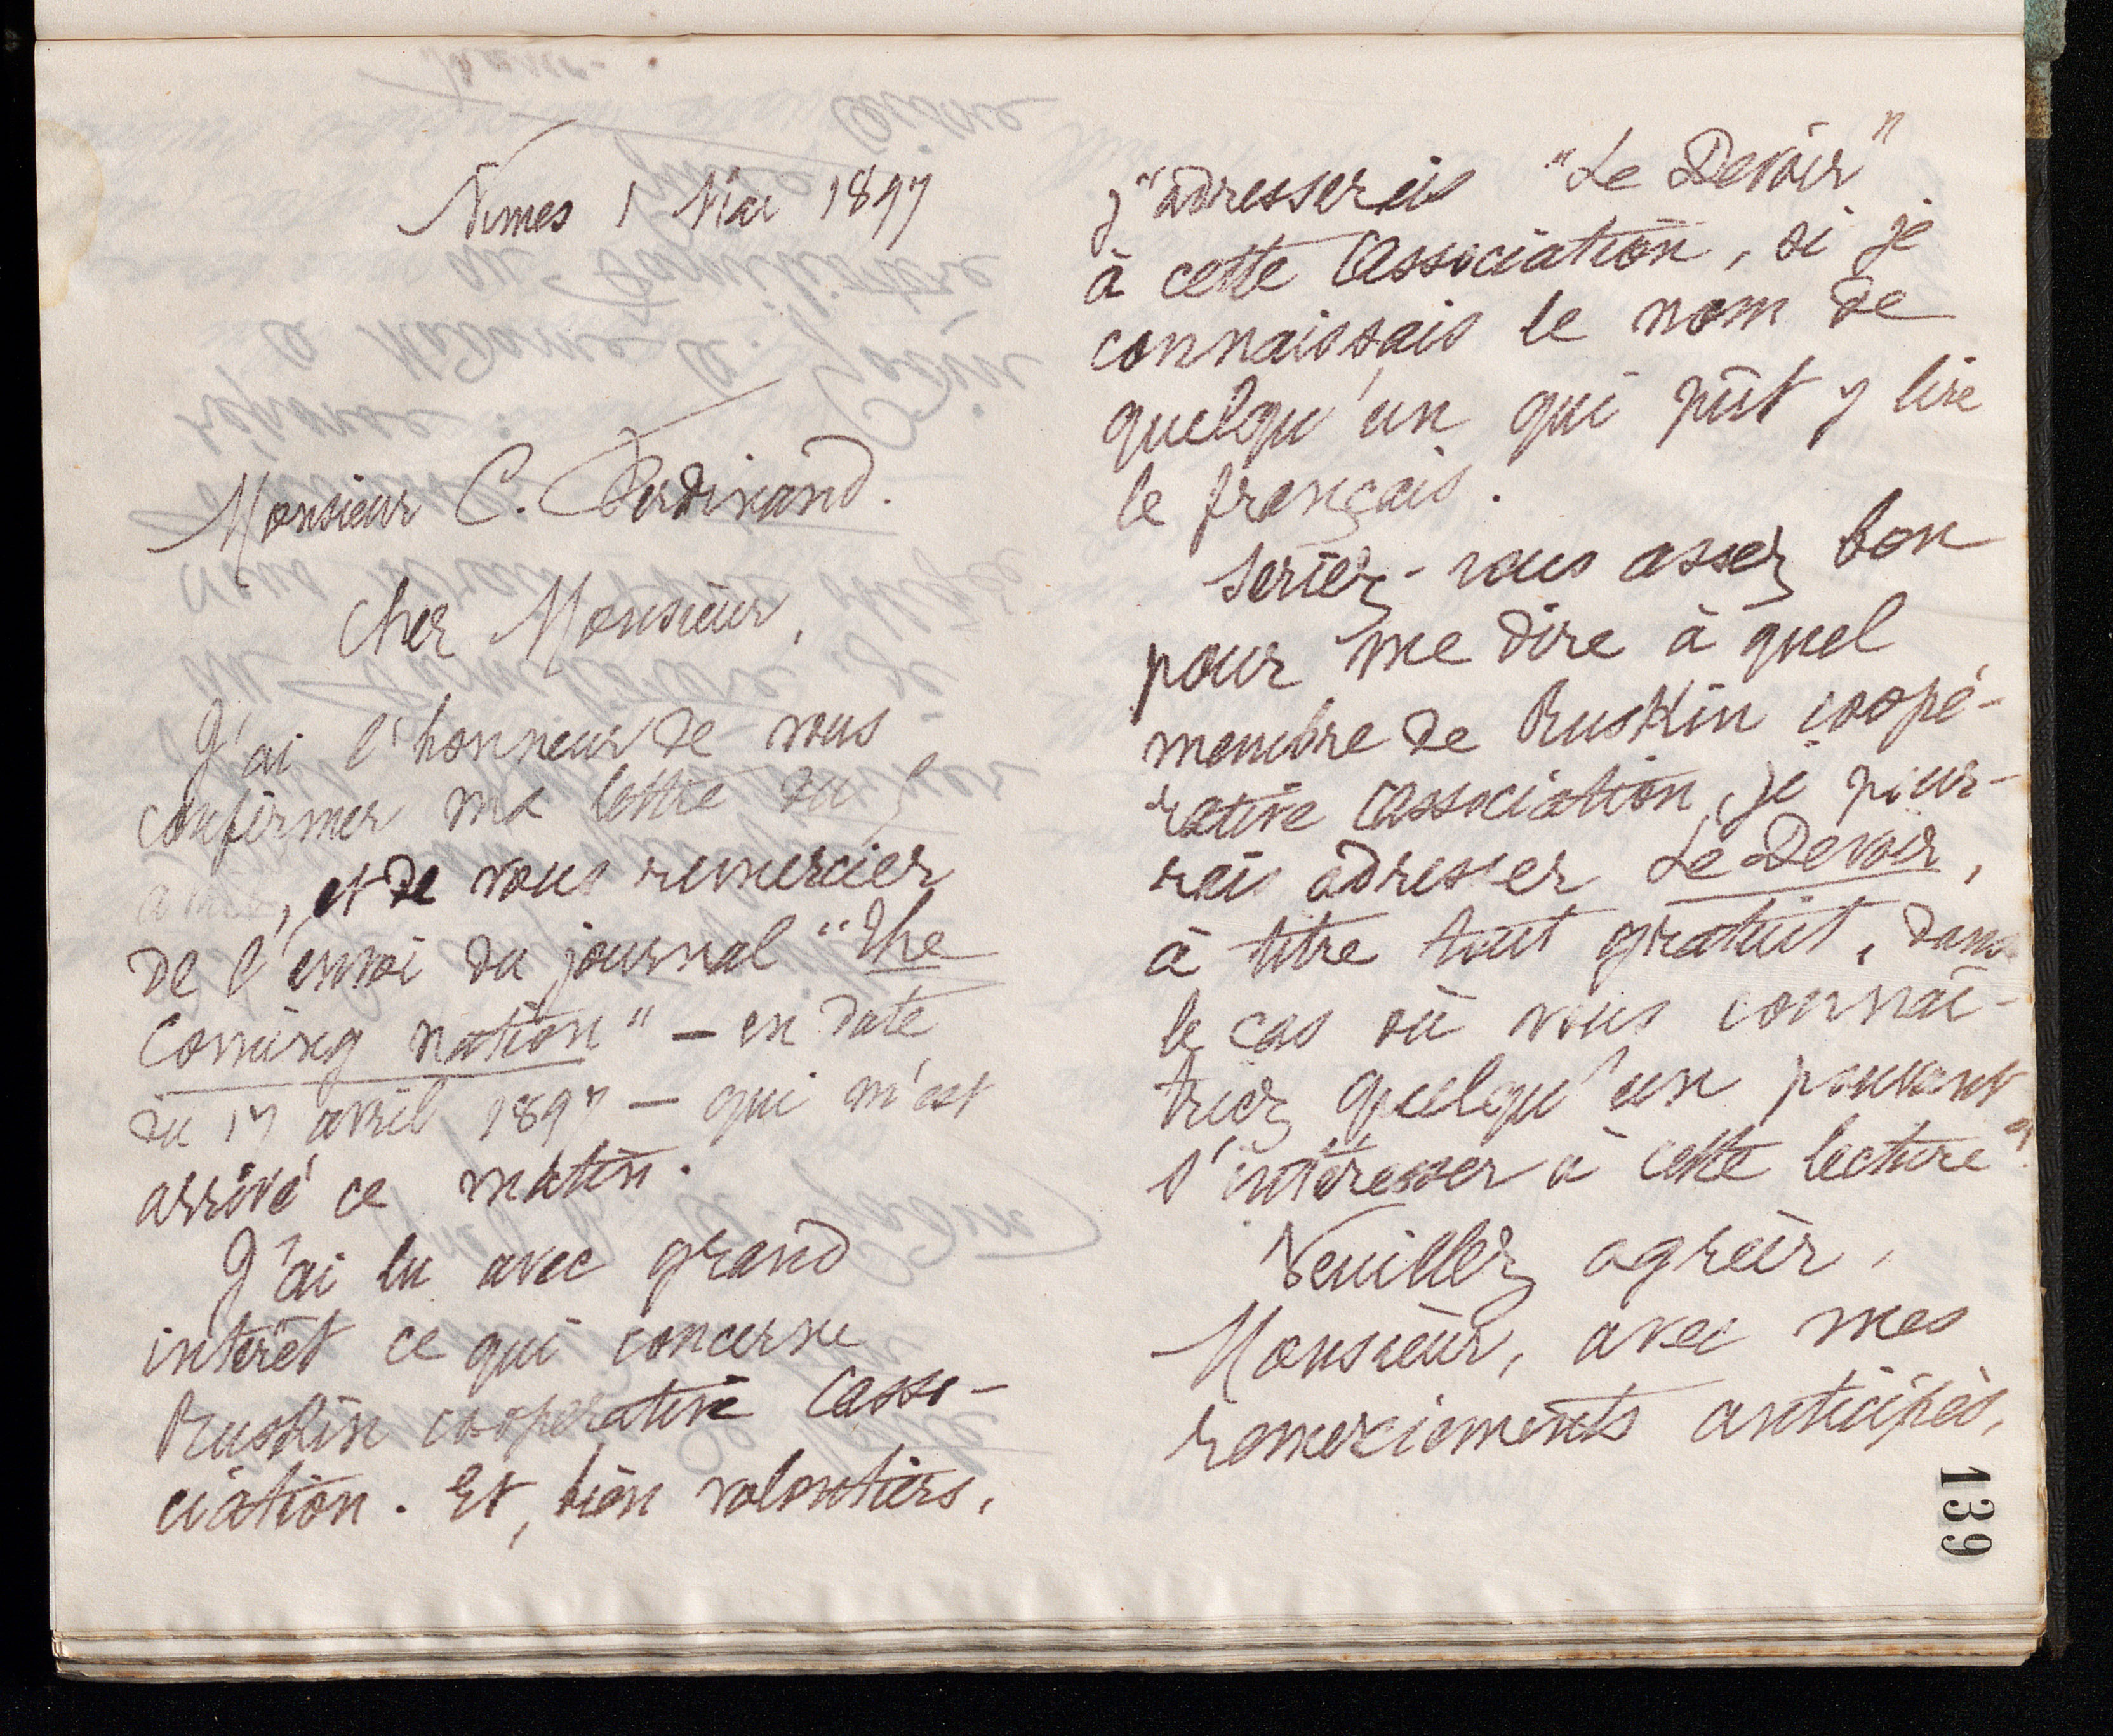 Nimes 1 Mai 1897
Monsieur C. Ferdinand.
Cher Monsieur,
J'ai l'honneur de vous
confirmer ma lettre du 5
avril, et de vous remercier
de l'envoi du journal "The
Coming nation" – en date
du 17 avril 1897 – qui m'est
arrivé ce matin.
J'ai lu avec grand
intérêt ce qui concerne
Ruskin cooperative Asso-
ciation. Et, bien volontiers,
j'adresserais "Le Devoir"
à cette Association, si je
connaissais le nom de
quelqu'un qui pût y lire
le français.
Seriez-vous assez bon
pour me dire à quel
membre de Ruskin coopé-
rative Association, je pour-
rais adresser Le Devoir,
à titre tout gratuit, dans
le cas où vous connaî-
triez quelqu'un pouvant
s'intéresser à cette lecture?
Veuillez agréer,
Monsieur, avec mes
remerciements anticipés,
139